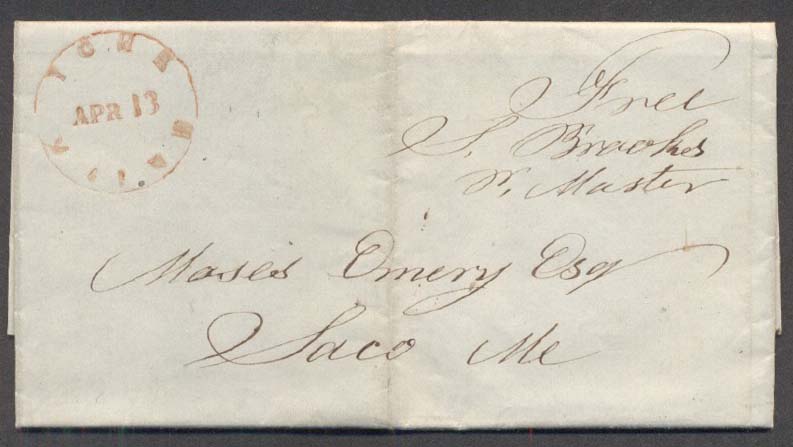 YORK
APR 13
Me.
Free
S. Brooks
P. Master
Moses Emery Esq
Saco Me